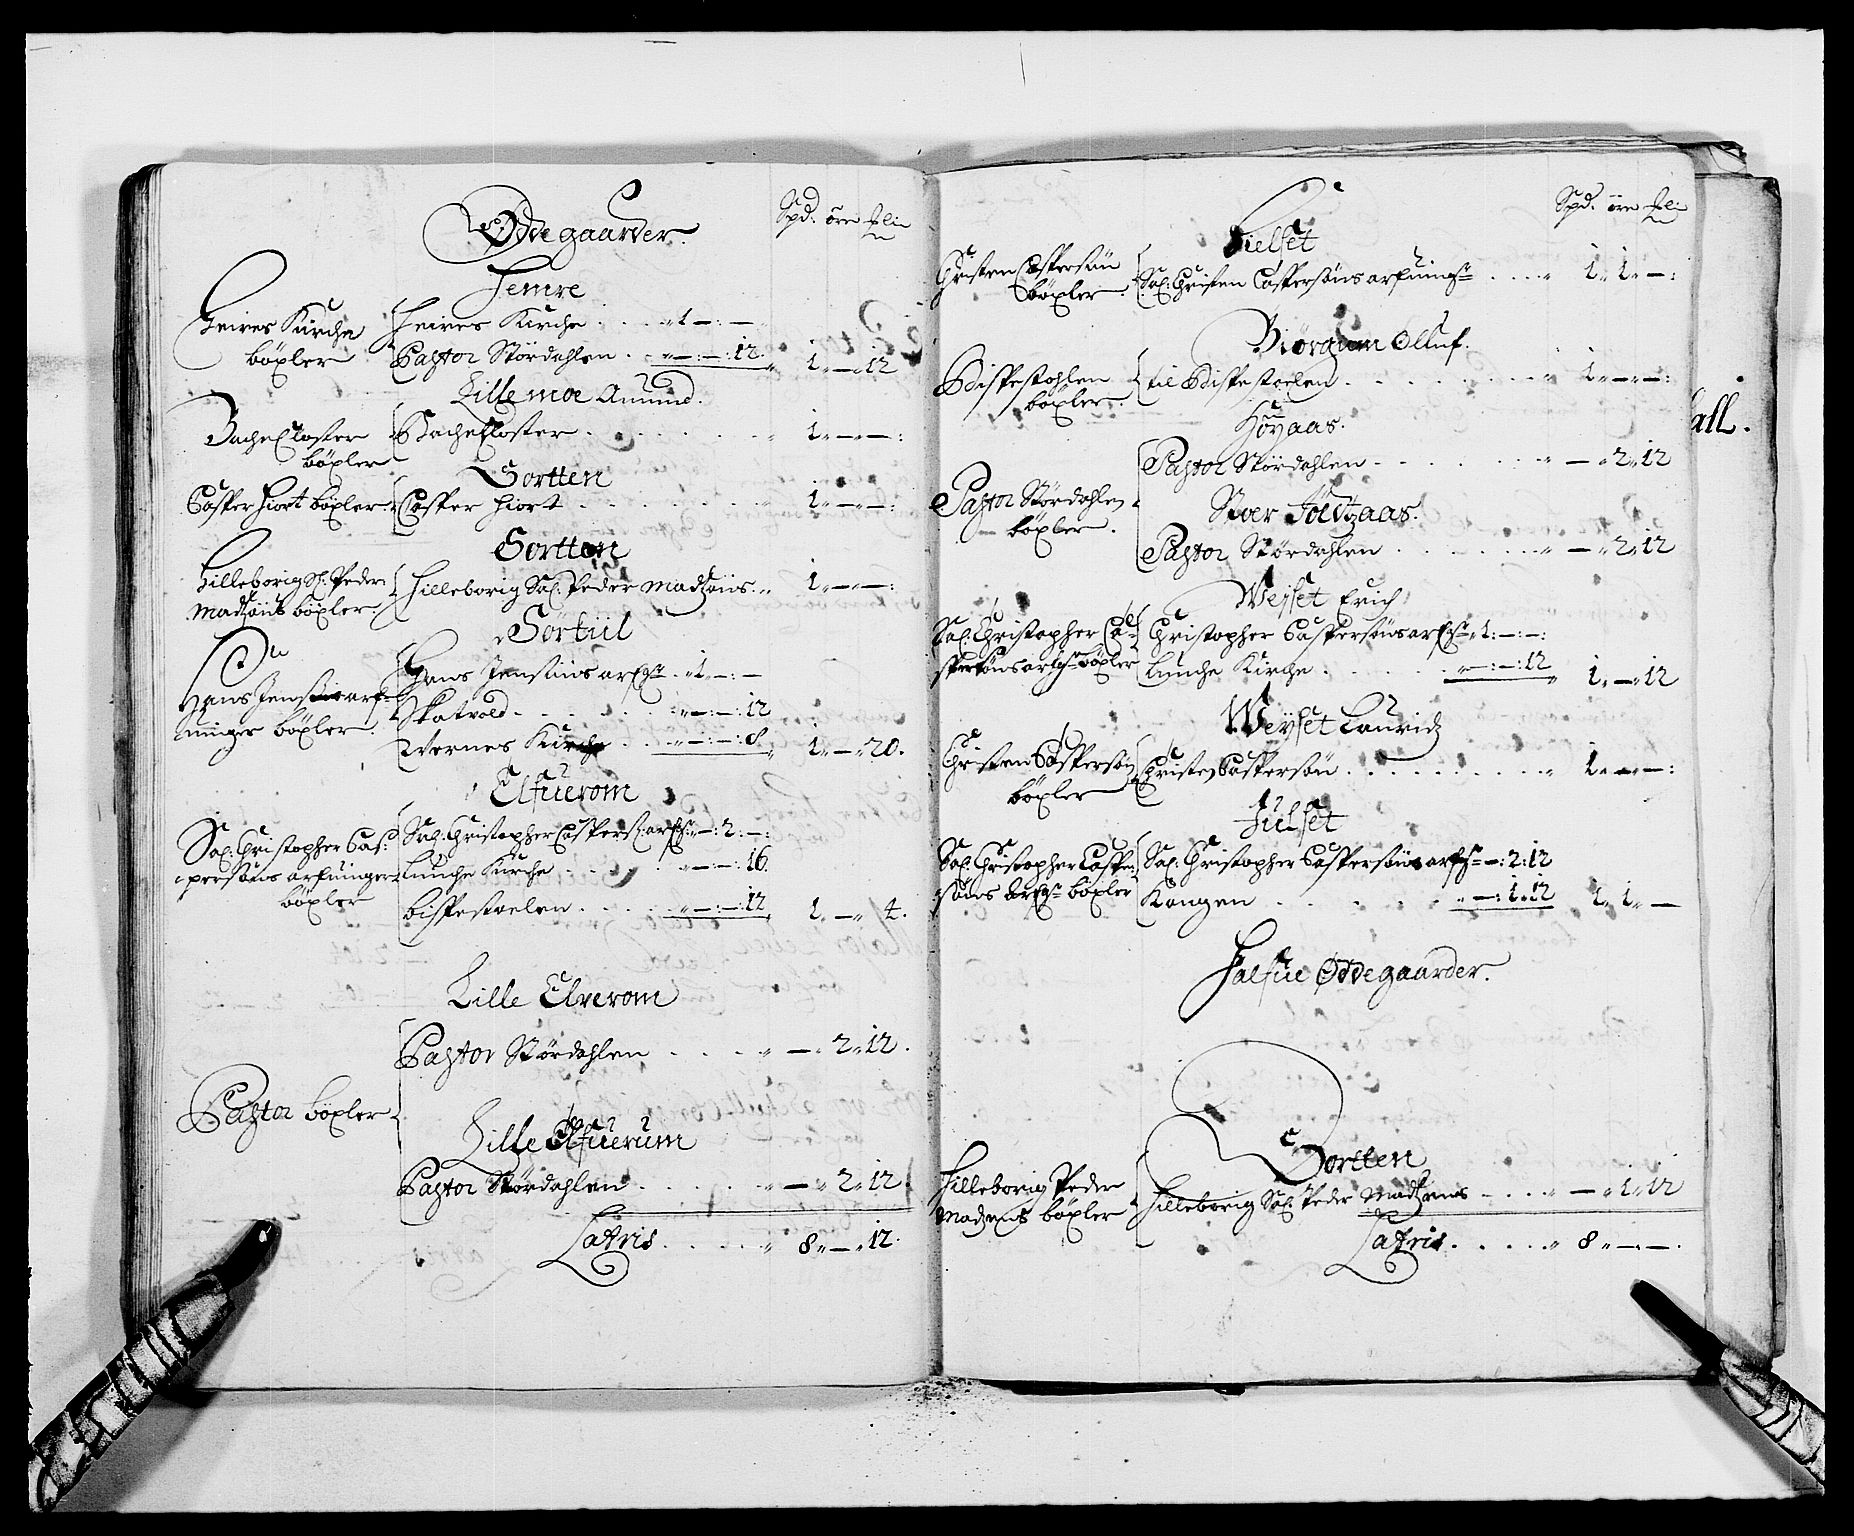 Spd. öre
Ødegaarder.
Hemre
Heires Kirche
bøxler
Heires Kirche . . . „1 – : –
Pastor Stördahlen . . „ – : – : 12. „ 1 „ – „ 12
Lille moe Amund.
Bache Closter
bøxler
Bache Closter . . . . . . „ 1 „ – „ – :
Sortten
Casper Hiort bøxler
Casper Hiort . . . . . . „ 1 „ – „ – :
Sortten
Hilleborig Sl: Peder
Madtzöns bøxler
Hilleborig Sal: Peder Madtzöns . „ 1 „ – „ – :
Sortiil
Hans Jensens arf-
ninger bøxler.
Hans Jensens arfgr . „ 1 „ – : –
Skatvold . . . . . „ – : – : 12
Wernes Kirche . . . „ – : – : 8 „ 1 „ – „ 20.
Elfuerom
Sal: Christopher Cas-
persöns arfuinger
bøxler
Sal: Christopher Caspers: arfgr „ – : 2 : – :
Lunche Kirche . . . . „ – : – : 16
bispestoelen . . . . . „ – : – : 12 „ 1 „ – „ 4.
Lille Elverom
Pastor bøxler
Pastor Stördahlen . . . . „ – „ 2 „ 12.
Lille Elfuerum
Pastor Stördahlen . . . . . „ – „ 2 „ 12
Latris . . . . . „ 8 „ – „ 12.
Spd. öre
Hielset
Christen Caspersön
bøxler.
Sal: Christen Caspersöns arfuingr . . . „ 1 „ 1 „ – :
Biörgum Olluf.
Bispestohlen
bøxler.
til Bispestoelen . . . . . . „ 1 „ – „ – :
Höyaas.
Pastor Stördahlen
bøxler.
Pastor Stördahlen . . . . . . „ – „ 2 „ 12
Stoer Foldtzaas.
Pastor Stördahlen . . . . . . „ – „ 2 „ 12
Weyset Erich
Sal: Christopher Ca-
spersöns arfgr bøxler
Christopher Caspersöns arfgr „ 1 : – : – :
Lunche Kirche . . . . . „ – : – : 12 „ 1 „ – „ 12
Weyset Lauridz
Christen Caspersön
bøxler
Christen Caspersön . . . . . . . „ 1 „ – „ – :
Julset
Sal: Christopher Casper-
söns arfgr bøxler
Sal: Christopher Caspersöns arfgr – : 2 : 12
Kongen . . . . . „ – : 1 : 12 1 „ 1 „ –
Halfue Ødegaarder.
Sortten
Hilleborig Peder
Madzens bøxler
Hilleborig Sal: Peder Madtzens . . . „ – „ 1 „ 12
Latris . . . . „ 8 „ – „ – .
all.